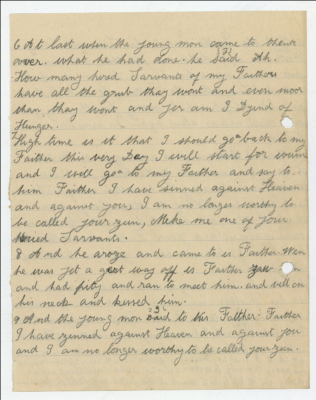 6 At last when the young mon came to thenk
over. what he had done. he said Ah.
How many hered Sarvants of my Fathers
have all the grub they wont and even moor
than thay wont and yer am I Dyend of
Hunger.
7 High time is it that I should go back to my
Faither this very Day I will start for wum
and I will go to my Faither and say to
him Faither I have sinned against Heaven
and against you, I am no longer worthy to
be called your zun, Make me one of your
hired Sarvants.
8 And he aroze and came to is Faither Wen
he was yet a gert way off is Faither zaw
and had pity and ran to meet him. and vell on
his neck and kessed him.
9 And the young mon said to his Faither- Faither
I have zenned against Heaven and against you
and I am no longer worthy to be called your zun.